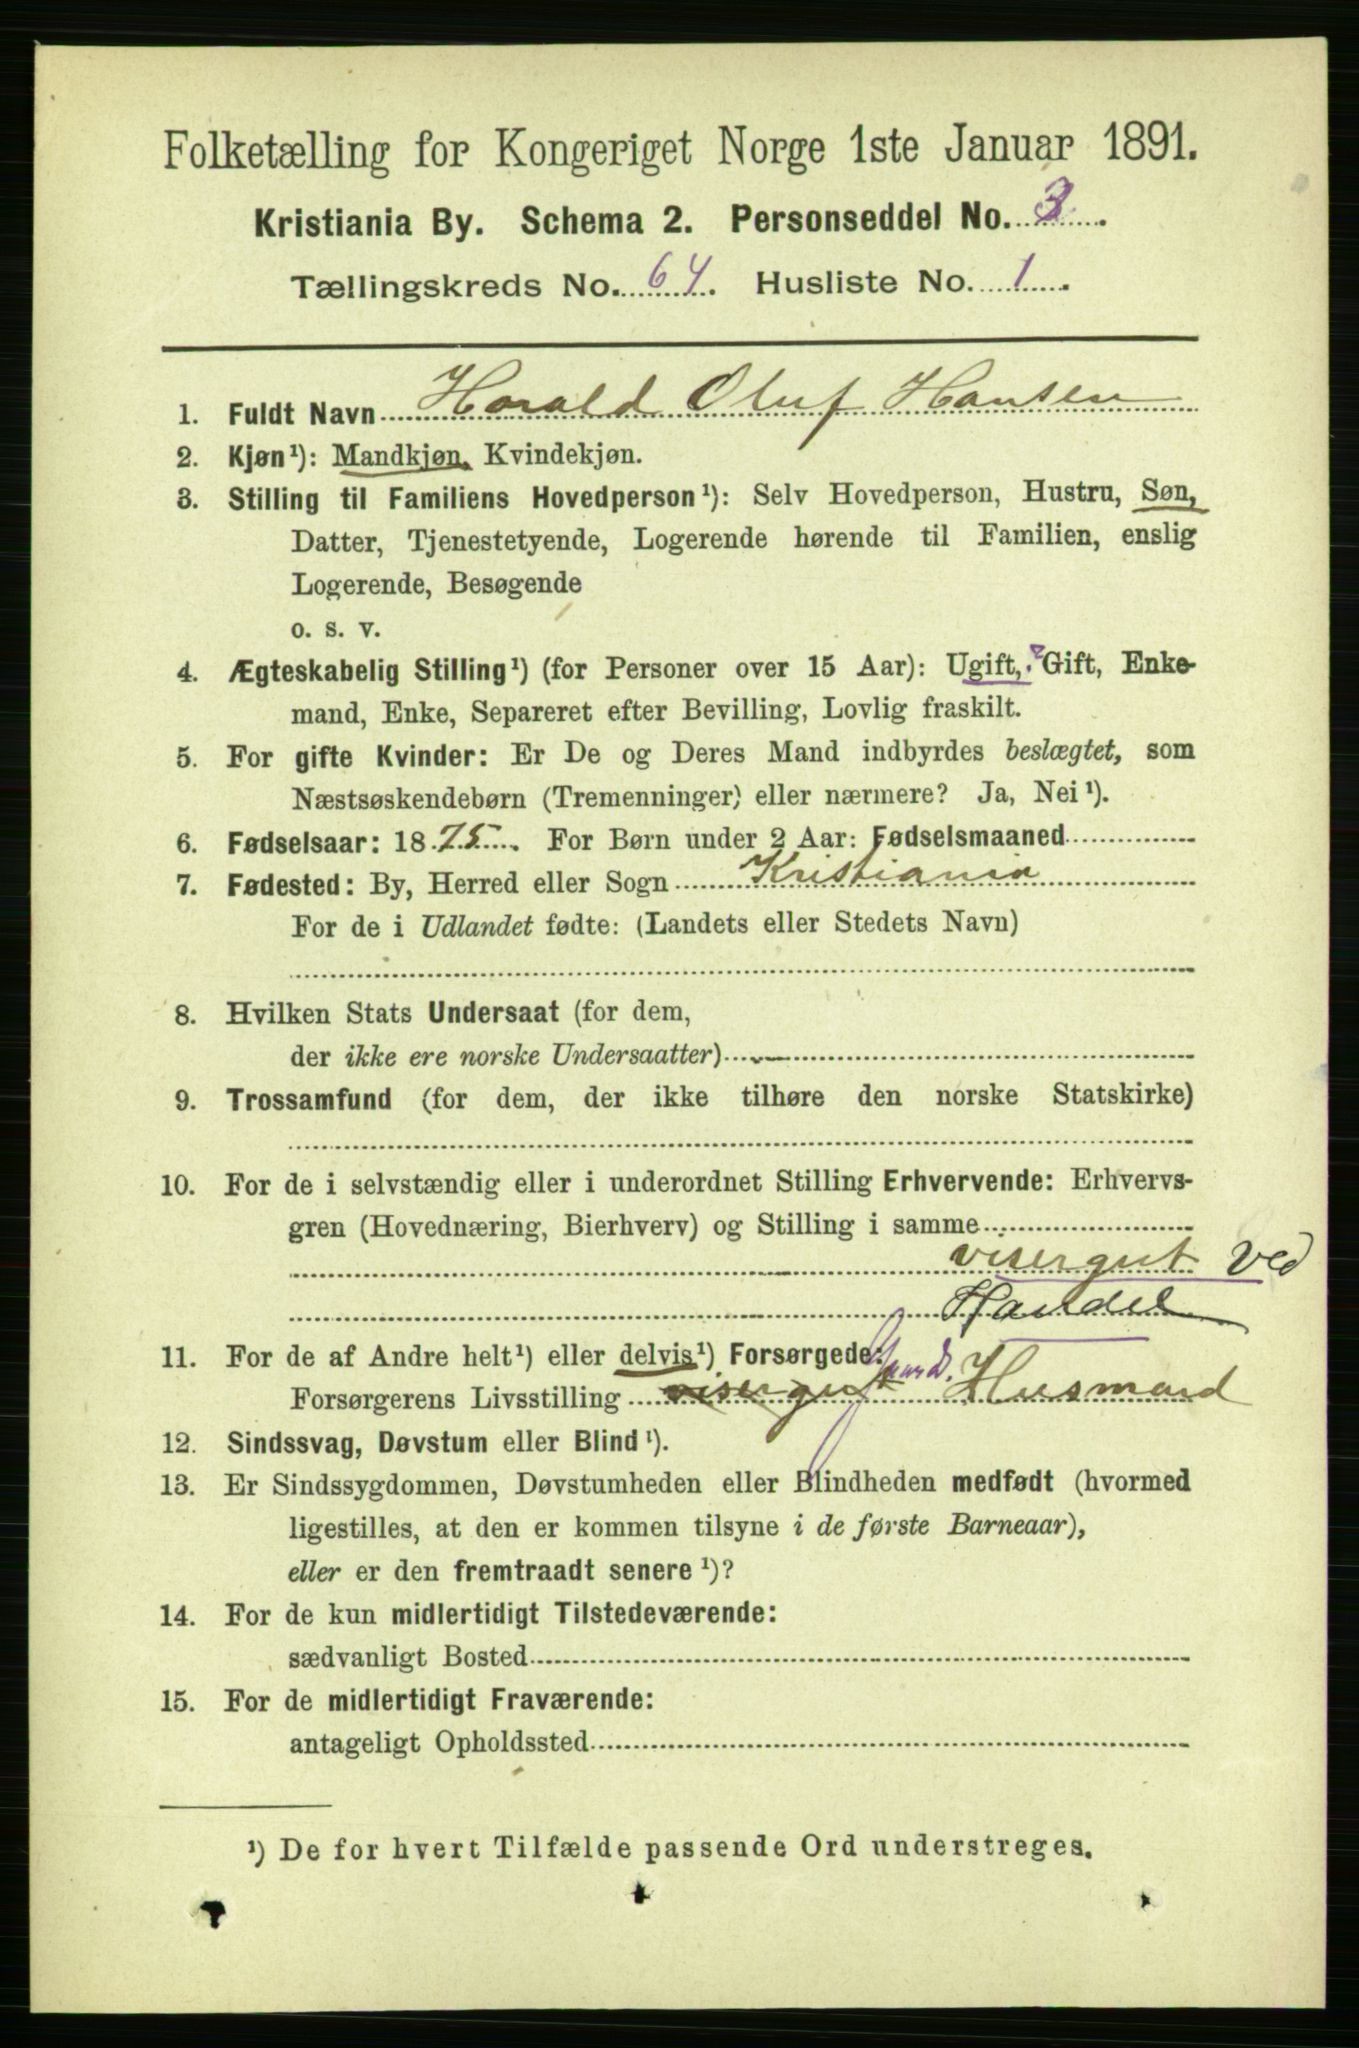 Folketælling for Kongeriget Norge 1ste Januar 1891.
Kristiania By. Schema 2. Personseddel No. 3.
Tællingskreds No. 64. Husliste No. 1.
1. Fuldt Navn Harald Oluf Hansen
2. Kjøn¹): Mandkjøn, Kvindekjøn.
3. Stilling til Familiens Hovedperson¹): Selv Hovedperson, Hustru, Søn,
Datter, Tjenestetyende, Logerende hørende til Familien, enslig
Logerende, Besøgende
o. s. v.
4. Ægteskabelig Stilling¹) (for Personer over 15 Aar): Ugift, Gift, Enke-
mand, Enke, Separeret efter Bevilling, Lovlig fraskilt.
5. For gifte Kvinder: Er De og Deres Mand indbyrdes beslægtet, som
Næstsøskendebørn (Tremenninger) eller nærmere? Ja, Nei¹).
6. Fødselsaar: 1875. For Børn under 2 Aar: Fødselsmaaned
7. Fødested: By, Herred eller Sogn Kristiania
For de i Udlandet fødte: (Landets eller Stedets Navn)
8. Hvilken Stats Undersaat (for dem,
der ikke ere norske Undersaatter)
9. Trossamfund (for dem, der ikke tilhøre den norske Statskirke)
10. For de i selvstændig eller i underordnet Stilling Erhvervende: Erhvervs-
gren (Hovednæring, Bierhverv) og Stilling i samme
visergut ved
Handel
11. For de af Andre helt¹) eller delvis¹) Forsørgede:
Forsørgerens Livsstilling visergut Husmand
12. Sindssvag, Døvstum eller Blind¹).
13. Er Sindssygdommen, Døvstumheden eller Blindheden medfødt (hvormed
ligestilles, at den er kommen tilsyne i de første Barneaar),
eller er den fremtraadt senere¹)?
14. For de kun midlertidigt Tilstedeværende:
sædvanligt Bosted
15. For de midlertidigt Fraværende:
antageligt Opholdssted
¹) De for hvert Tilfælde passende Ord understreges.